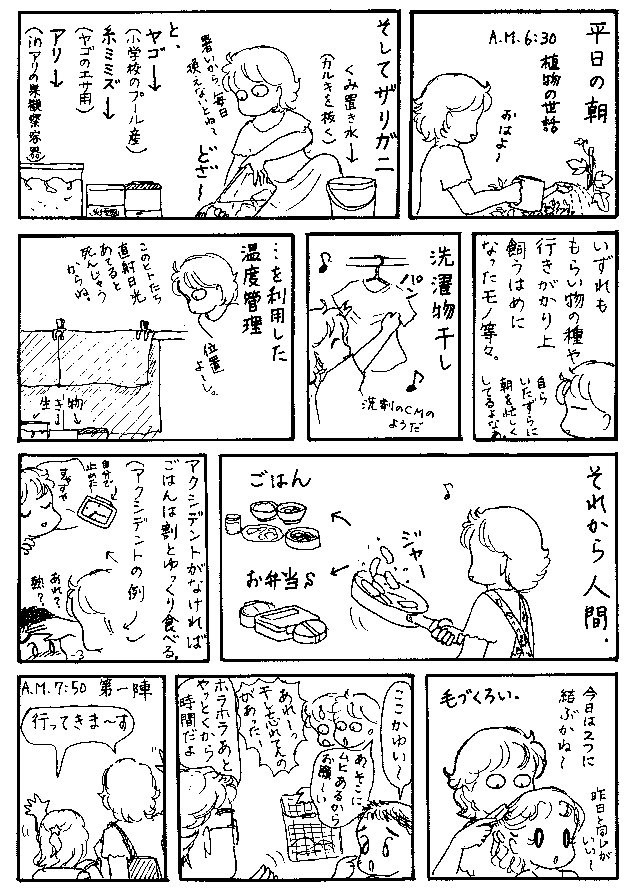 平日の朝
A.M. 6:30
植物の世話
おはよ〜
そしてザリガニ
くみ置き水→
(カルキを抜く)
暑いから、毎日
換えないとね〜
どざ〜
と、
ヤゴ→
(小学校のプール産)
糸ミミズ→
(ヤゴのエサ用)
アリ→
(inアリの巣観察容器)
いずれも
もらい物の種や
行きがかり上
飼うはめに
なったモノ等々。
自ら
いたずらに
朝を忙しく
してるよなあ。
洗濯物干し
パン
洗剤のCMの
ようだ
…を利用した
温度管理
このヒトたち
直射日光
あてると
死んじゃう
からね。
位置
よーし。
生き物
それから人間。
ジャー
ごはん
お弁当S
アクシデントがなければ
ごはんは割とゆっくり食べる。
(アクシデントの例)
自分で
止めた
すやすや
あれ?
熱?
毛づくろい。
今日は2つに
結ぶかね〜
昨日と同じが
いい〜
ここかゆい〜
あそこに
ムヒあるから
お願〜い
あれーっ
干し忘れてんの
があった!
ホラホラあと
やっとくから
時間だよ
A.M. 7:50 第一陣
行ってきま〜す